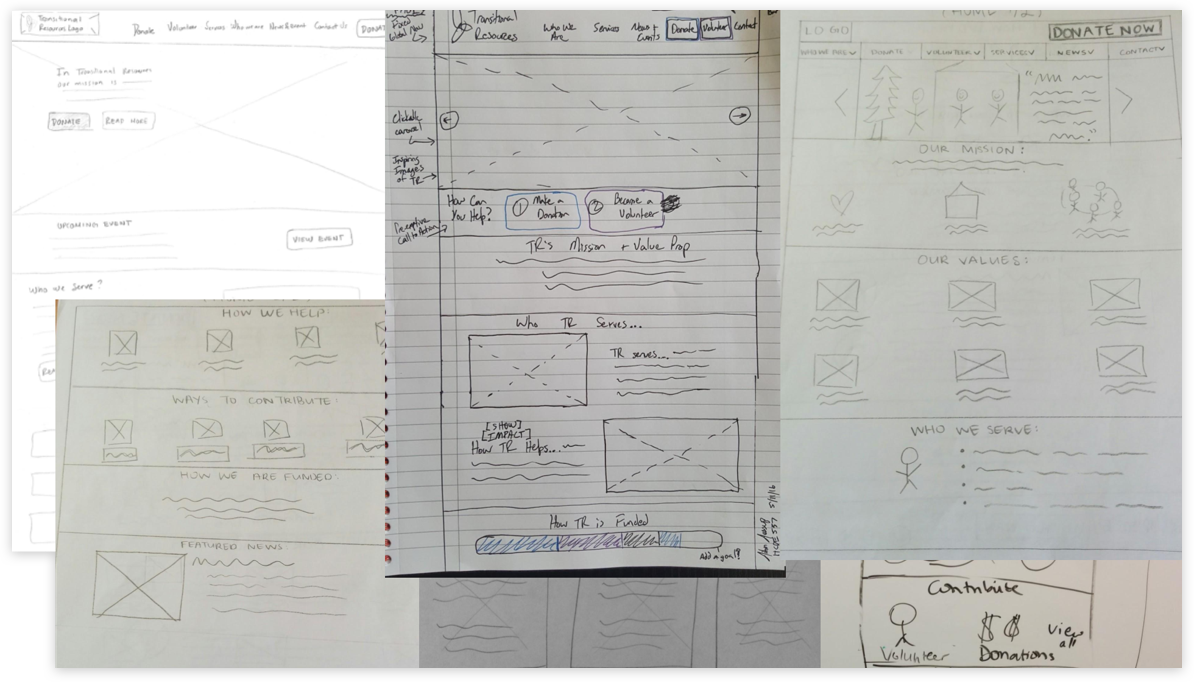 Transitional
Resources Logo
Donate
Volunteer
Services
Who we are
News & Event
Contact Us
DONATE
In Transitional Resources
our mission is
DONATE
READ MORE
UPCOMING EVENT
VIEW EVENT
Who We Serve?
HOW WE HELP:
WAYS TO CONTRIBUTE:
HOW WE ARE FUNDED:
FEATURED NEWS
Fixed
Global Nav
Transitional
Resources
Who We
Are
Services
News +
Events
Donate
Volunteer
Contact
Clickable
carousel
Inspiring
Images
of TR
How Can
You Help?
1 Make a
Donation
2 Become a
Volunteer
Call to Action
TR's Mission + Value Prop
Who TR Serves...
TR serves...
[SHOW]
[IMPACT]
How TR Helps...
How TR is Funded
Add a goal?
HCDE 537 5/11/16
LOGO
DONATE NOW
WHO WE ARE
DONATE
VOLUNTEER
SERVICES
NEWS
CONTACT
OUR MISSION:
OUR VALUES:
WHO WE SERVE:
Contribute
$
Volunteer
Donations
View
all